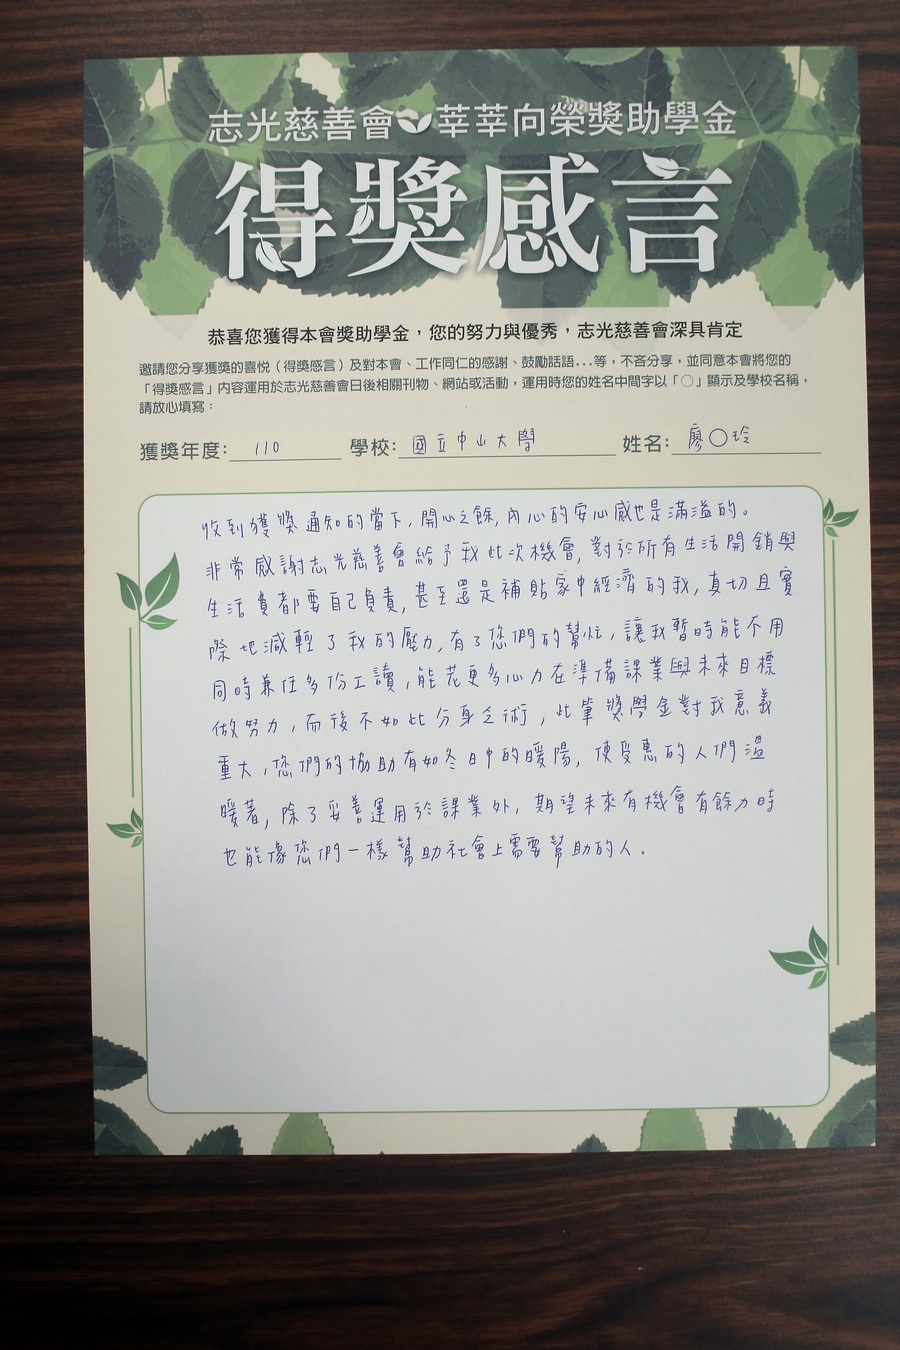 志光慈善會 莘莘向榮獎助學金
得獎感言
恭喜您獲得本會獎助學金，您的努力與優秀，志光慈善會深具肯定
邀請您分享獲獎的喜悅（得獎感言）及對本會、工作同仁的感謝、鼓勵話語...等，不吝分享，並同意本會將您的
「得獎感言」內容運用於志光慈善會日後相關刊物、網站或活動，運用時您的姓名中間字以「○」顯示及學校名稱，
請放心填寫：
獲獎年度: 110 學校: 國立中山大學 姓名: 廖○玲
收到獲獎通知的當下，開心之餘，內心的安心感也是滿溢的。
非常感謝志光慈善會給予我此次機會，對於所有生活開銷與
生活費都要自己負責，甚至還是補貼家中經濟的我，真切且實
際地減輕了我的壓力，有了您們的幫忙，讓我暫時能不用
同時兼任多份工讀，能花更多心力在準備課業與未來目標
做努力，而後不如此分身乏術，此筆獎學金對我意義
重大，您們的協助有如冬日中的暖陽，使受惠的人們溫
暖著，除了妥善運用於課業外，期望未來有機會有餘力時
也能像您們一樣幫助社會上需要幫助的人。